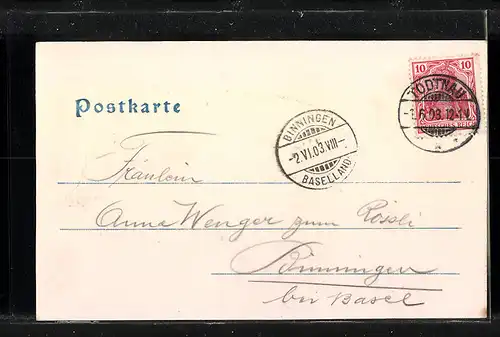 10 10
TODTNAU
-1.6.03.12-1N.
DEUTSCHES REICH
Postkarte
BINNINGEN
-2.VI.03.VIII-
BASELLAND
Fräulein
Anna Wenger zum Rössli
Binningen
bei Basel